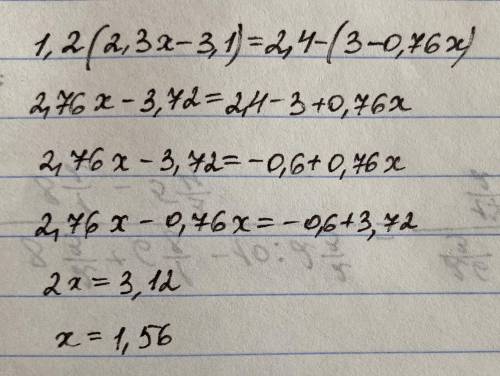 1,2(2,3x-3,1)=2,4-(3-0,76x)
2,76x-3,72=2,4-3+0,76x
2,76x-3,72=-0,6+0,76x
2,76x-0,76x=-0,6+3,72
2x=3,12
x=1,56